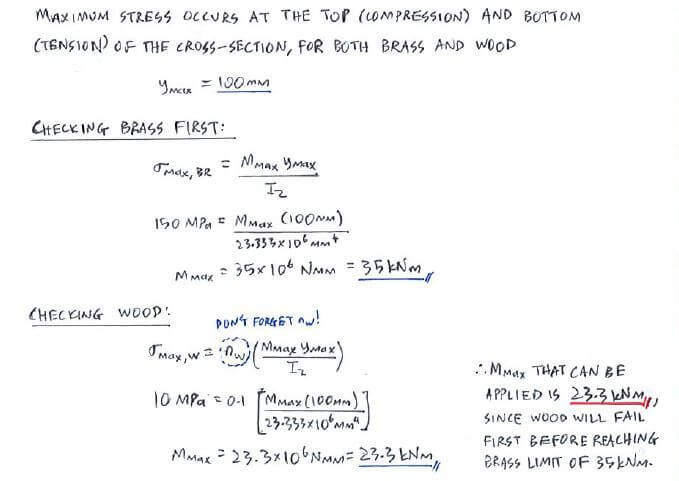 MAXIMUM STRESS OCCURS AT THE TOP (COMPRESSION) AND BOTTOM
(TENSION) OF THE CROSS-SECTION, FOR BOTH BRASS AND WOOD
y_max = 100mm
CHECKING BRASS FIRST:
σ_max,BR = M_max y_max / I_z
150 MPa = M_max (100mm) / 23.333×10⁶ mm⁴
M_max = 35×10⁶ Nmm = 35 kNm
CHECKING WOOD:
DON'T FORGET n_w!
σ_max,w = n_w (M_max y_max / I_z)
10 MPa = 0.1 [M_max (100mm) / 23.333×10⁶ mm⁴]
M_max = 23.3×10⁶ Nmm = 23.3 kNm
∴ M_max THAT CAN BE
APPLIED IS 23.3 kNm,
SINCE WOOD WILL FAIL
FIRST BEFORE REACHING
BRASS LIMIT OF 35kNm.